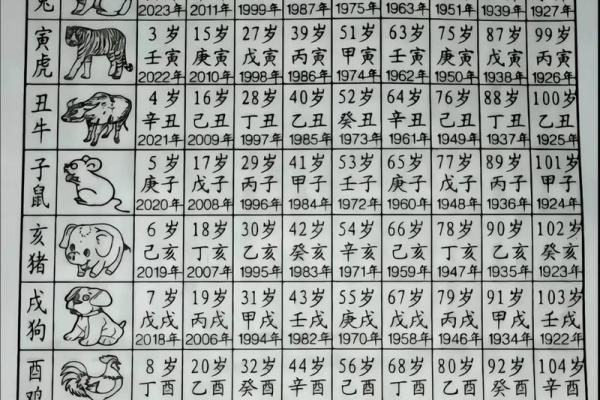 兔
2023年 2011年 1999年 1987年 1975年 1963年 1951年 1939年 1927年
寅虎
3岁 15岁 27岁 39岁 51岁 63岁 75岁 87岁 99岁
壬寅 庚寅 戊寅 丙寅 甲寅 壬寅 庚寅 戊寅 丙寅
2022年 2010年 1998年 1986年 1974年 1962年 1950年 1938年 1926年
丑牛
4岁 16岁 28岁 40岁 52岁 64岁 76岁 88岁 100岁
辛丑 己丑 丁丑 乙丑 癸丑 辛丑 己丑 丁丑 乙丑
2021年 2009年 1997年 1985年 1973年 1961年 1949年 1937年 1925年
子鼠
5岁 17岁 29岁 41岁 53岁 65岁 77岁 89岁 101岁
庚子 戊子 丙子 甲子 壬子 庚子 戊子 丙子 甲子
2020年 2008年 1996年 1984年 1972年 1960年 1948年 1936年 1924年
亥猪
6岁 18岁 30岁 42岁 54岁 66岁 78岁 90岁 102岁
己亥 丁亥 乙亥 癸亥 辛亥 己亥 丁亥 乙亥 癸亥
2019年 2007年 1995年 1983年 1971年 1959年 1947年 1935年 1923年
戌狗
7岁 19岁 31岁 43岁 55岁 67岁 79岁 91岁 103岁
戊戌 丙戌 甲戌 壬戌 庚戌 戊戌 丙戌 甲戌 壬戌
2018年 2006年 1994年 1982年 1970年 1958年 1946年 1934年 1922年
酉鸡
8岁 20岁 32岁 44岁 56岁 68岁 80岁 92岁 104岁
丁酉 乙酉 癸酉 辛酉 己酉 丁酉 乙酉 癸酉 辛酉